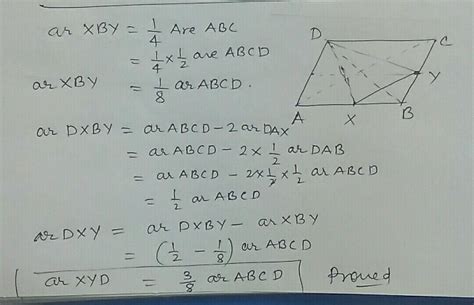 ar XBY = 1/4 Are ABC
= 1/4 x 1/2 are ABCD
ar XBY = 1/8 ar ABCD.
ar DXBY = ar ABCD - 2 ar DAX
= ar ABCD - 2 x 1/2 ar DAB
= ar ABCD - 2 x 1/2 x 1/2 ar ABCD
= 1/2 ar ABCD
ar DXY = ar DXBY - ar XBY
= (1/2 - 1/8) ar ABCD
ar XYD = 3/8 ar ABCD Proved
D
C
Y
A
X
B